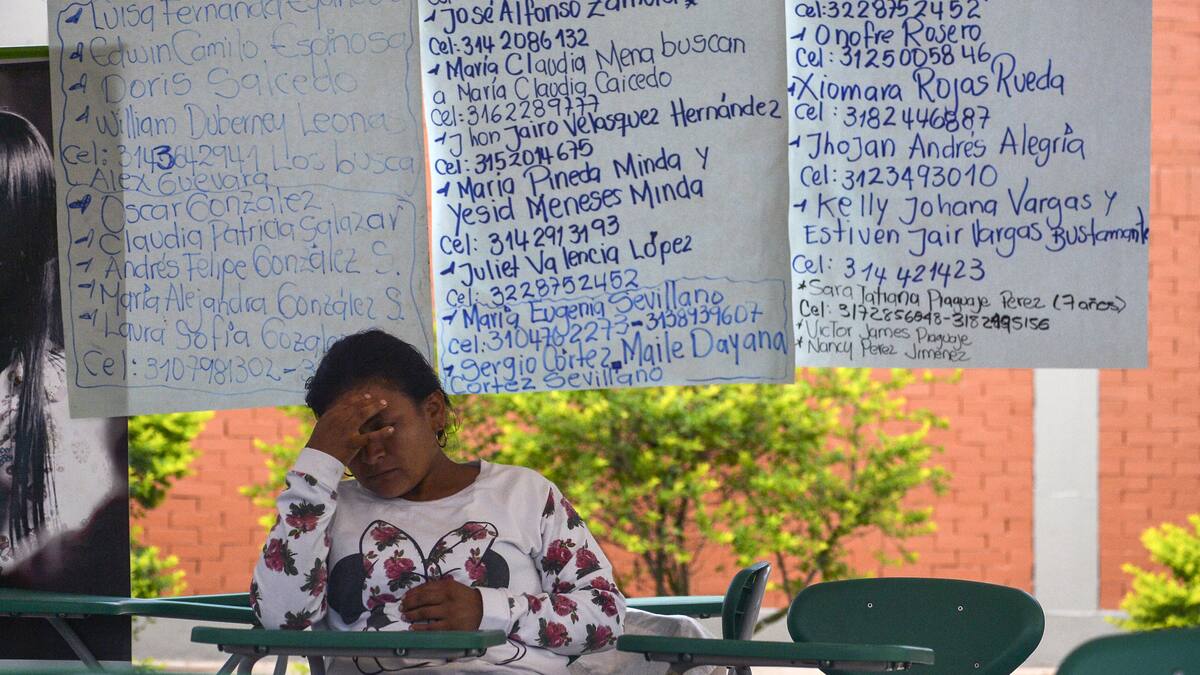 Luisa Fernanda
Edwin Camilo Espinosa
Doris Salcedo
William Duberney Leonas
Cel: 3143642941 Llos busca
Alex Guevara
Oscar González
Claudia Patricia Salazar
Andrés Felipe González S.
María Alejandra González S.
Laura Sofía
Cel: 3107981302-3
José Alfonso
Cel: 3142086132
María Claudia Mena buscan
a María Claudia Caicedo
Cel: 3162289777
Jhon Jairo Velasquez Hernández
Cel: 3152014675
María Pineda Minda y
Yesid Meneses Minda
Cel: 3142913193
Juliet Valencia López
Cel: 3228752452
María Eugenia Sevillano
Cel: 3104762273-3138939607
Sergio Cortez - Maile Dayana
Cortez Sevillano
Cel: 3228752452
Onofre Rosero
Cel: 3125005846
Xiomara Rojas Rueda
Cel: 3182446887
Jhojan Andrés Alegría
Cel: 3123493010
Kelly Johana Vargas y
Estiven Jair Vargas Bustamante
Cel: 314 421423
*Sara Tatiana Piaguaje Pérez (7 años)
Cel: 3172856948-3182495156
*Victor James Piaguaje
*Nancy Pérez Jiménez